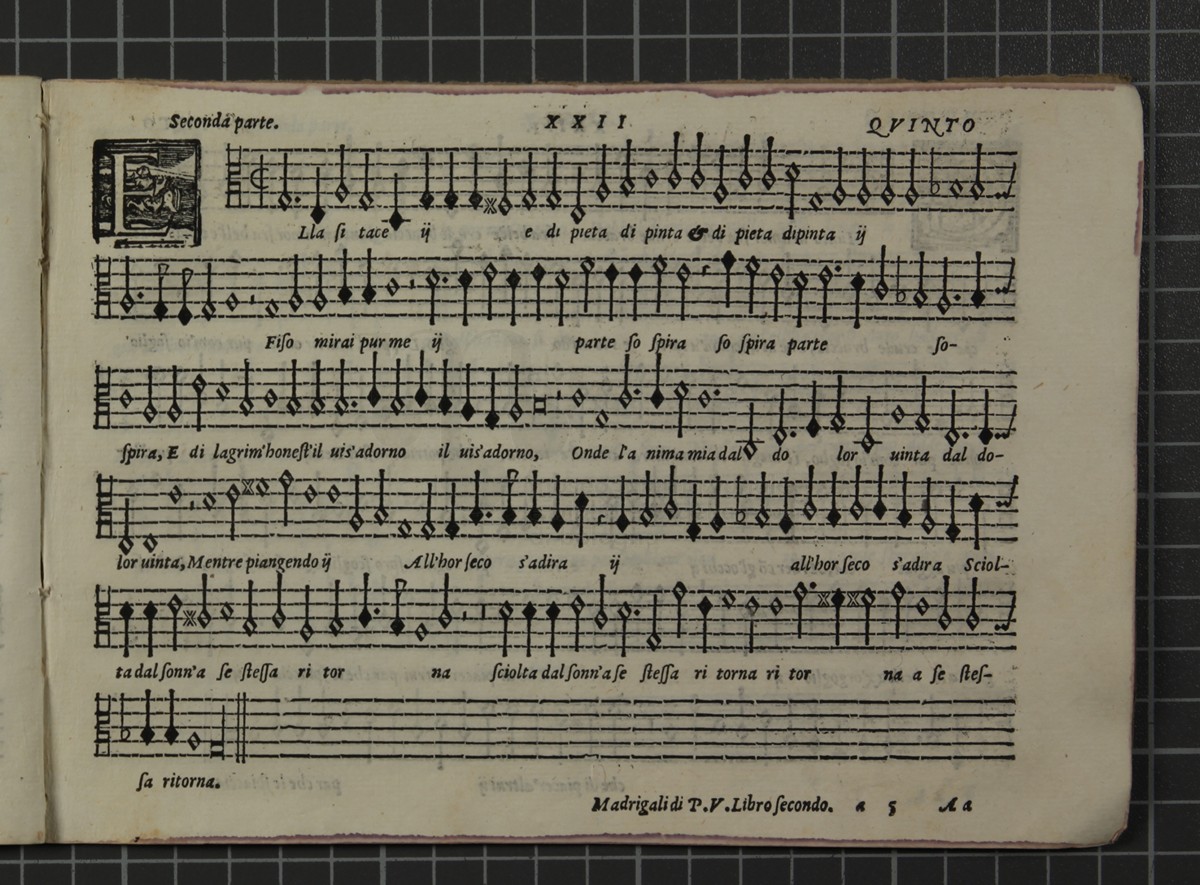 Seconda parte. XXII QVINTO
ELla ſi tace ij e di pieta di pinta & di pieta dipinta ij
Fiſo mirai pur me ij parte ſo ſpira ſo ſpira parte ſo-
ſpira, E di lagrim'honeſt'il uis'adorno il uis'adorno, Onde l'a nima mia dal do lor uinta dal do-
lor uinta, Mentre piangendo ij All'hor ſeco s'adira ij all'hor ſeco s'adira Sciol-
ta dal ſonn'a ſe ſteſſa ri tor na ſciolta dal ſonn'a ſe ſteſſa ri torna ri tor na a ſe ſteſ-
ſa ritorna.
Madrigali di P. V. Libro ſecondo. a 5 A a